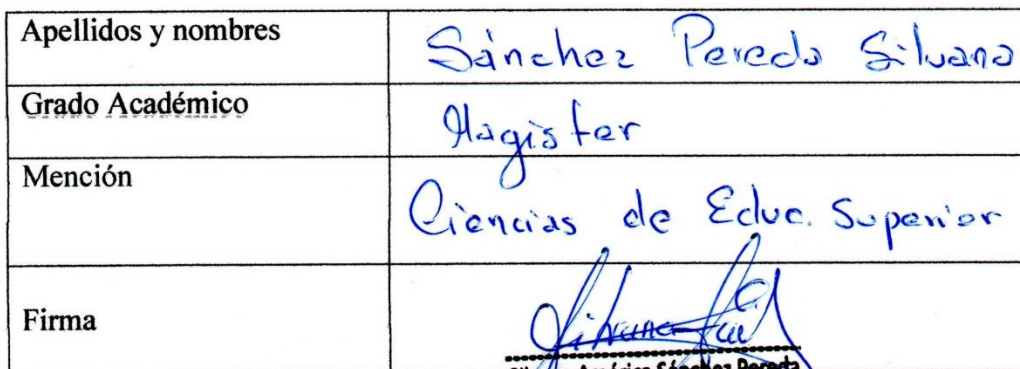 Apellidos y nombres
Sánchez Pereda Silvana
Grado Académico
Magister
Mención
Ciencias de Educ. Superior
Firma
América Sánchez Pereda